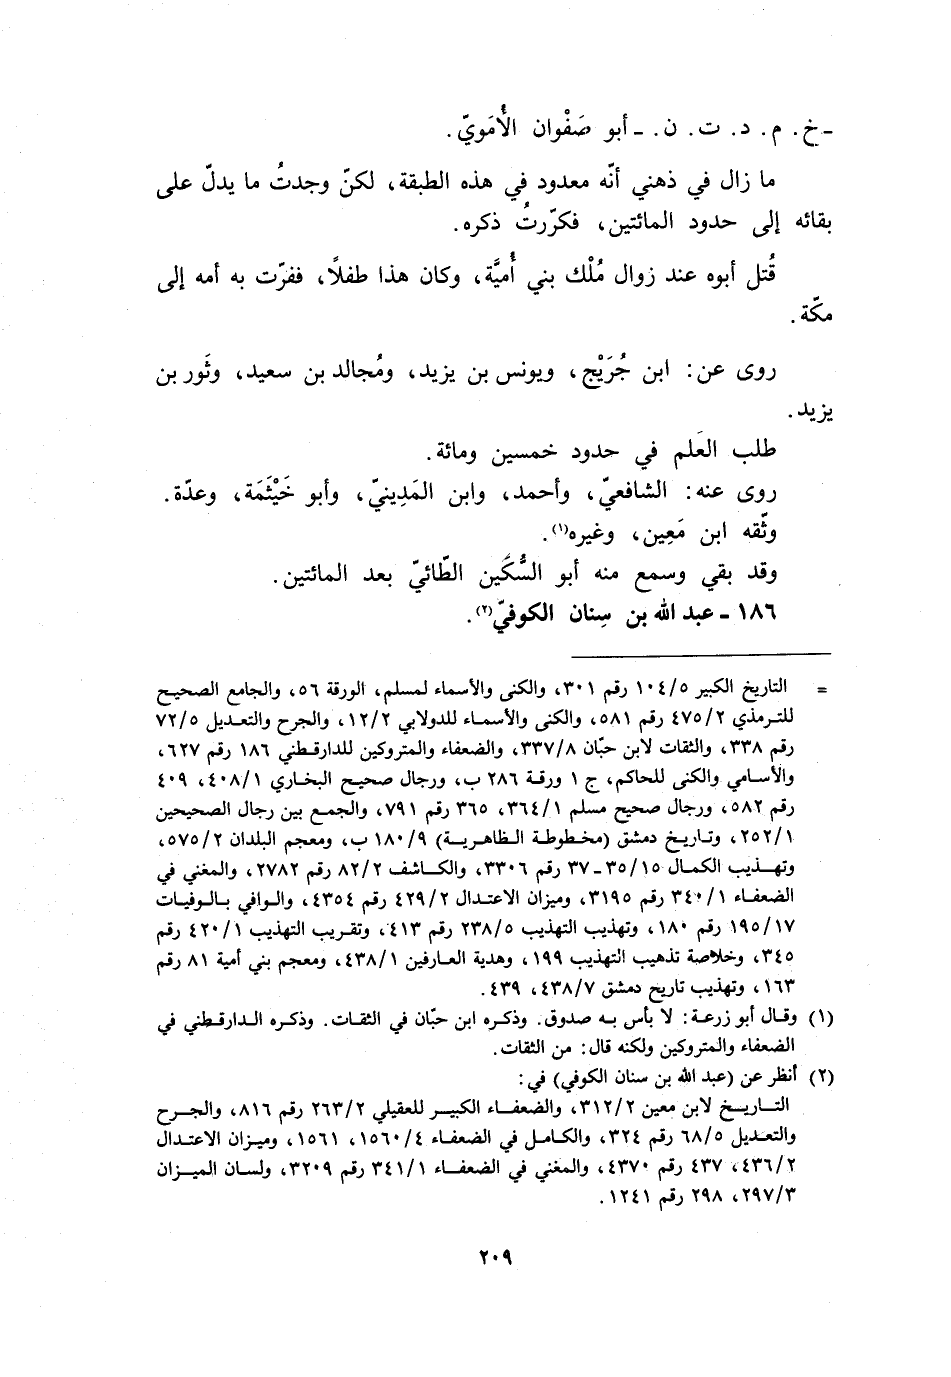 ـ خ. م. د. ت. ن. ـ أبو صَفْوان الأُمَويّ.
ما زال في ذهني أنّه معدود في هذه الطبقة، لكنّ وجدتُ ما يدلّ على
بقائه إلى حدود المائتين، فكرّرتُ ذكره.
قُتل أبوه عند زوال مُلْك بني أُميَّة، وكان هذا طفلاً، ففرّت به أمه إلى
مكّة.
روى عن: ابن جُرَيْج، ويونس بن يزيد، ومُجالد بن سعيد، وثَور بن
يزيد.
طلب العَلم في حدود خمسين ومائة.
روى عنه: الشافعيّ، وأحمد، وابن المَدِينيّ، وأبو خَيْثَمَة، وعدّة.
وثّقه ابن مَعِين، وغيره(١).
وقد بقي وسمع منه أبو السُّكَين الطّائيّ بعد المائتين.
١٨٦ ـ عبد الله بن سِنان الكوفيّ(٢).
= التاريخ الكبير ١٠٤/٥ رقم ٣٠١، والكنى والأسماء لمسلم، الورقة ٥٦، والجامع الصحيح
للترمذي ٤٧٥/٢ رقم ٥٨١، والكنى والأسماء للدولابي ١٢/٢، والجرح والتعديل ٧٢/٥
رقم ٣٣٨، والثقات لابن حبّان ٣٣٧/٨، والضعفاء والمتروكين للدارقطني ١٨٦ رقم ٦٢٧،
والأسامي والكنى للحاكم، ج ١ ورقة ٢٨٦ ب، ورجال صحيح البخاري ٤٠٨/١، ٤٠٩
رقم ٥٨٢، ورجال صحيح مسلم ٣٦٤/١، ٣٦٥ رقم ٧٩١، والجمع بين رجال الصحيحين
٢٥٢/١، وتاريخ دمشق (مخطوطة الظاهرية) ١٨٠/٩ ب، ومعجم البلدان ٥٧٥/٢،
وتهذيب الكمال ٣٥/١٥ ـ ٣٧ رقم ٣٣٠٦، والكاشف ٨٢/٢ رقم ٢٧٨٢، والمغني في
الضعفاء ٣٤٠/١ رقم ٣١٩٥، وميزان الاعتدال ٤٢٩/٢ رقم ٤٣٥٤، والوافي بالوفيات
١٩٥/١٧ رقم ١٨٠، وتهذيب التهذيب ٢٣٨/٥ رقم ٤١٣، وتقريب التهذيب ٤٢٠/١ رقم
٣٤٥، وخلاصة تذهيب التهذيب ١٩٩، وهدية العارفين ٤٣٨/١، ومعجم بني أمية ٨١ رقم
١٦٣، وتهذيب تاريخ دمشق ٤٣٨/٧، ٤٣٩.
(١) وقال أبو زرعة: لا بأس به صدوق. وذكره ابن حبّان في الثقات. وذكره الدارقطني في
الضعفاء والمتروكين ولكنه قال: من الثقات.
(٢) أنظر عن (عبد الله بن سنان الكوفي) في:
التاريخ لابن معين ٣١٢/٢، والضعفاء الكبير للعقيلي ٢٦٣/٢ رقم ٨١٦، والجرح
والتعديل ٦٨/٥ رقم ٣٢٤، والكامل في الضعفاء ١٥٦٠/٤، ١٥٦١، وميزان الاعتدال
٤٣٦/٢، ٤٣٧ رقم ٤٣٧٠، والمغني في الضعفاء ٣٤١/١ رقم ٣٢٠٩، ولسان الميزان
٢٩٧/٣، ٢٩٨ رقم ١٢٤١.
٢٠٩